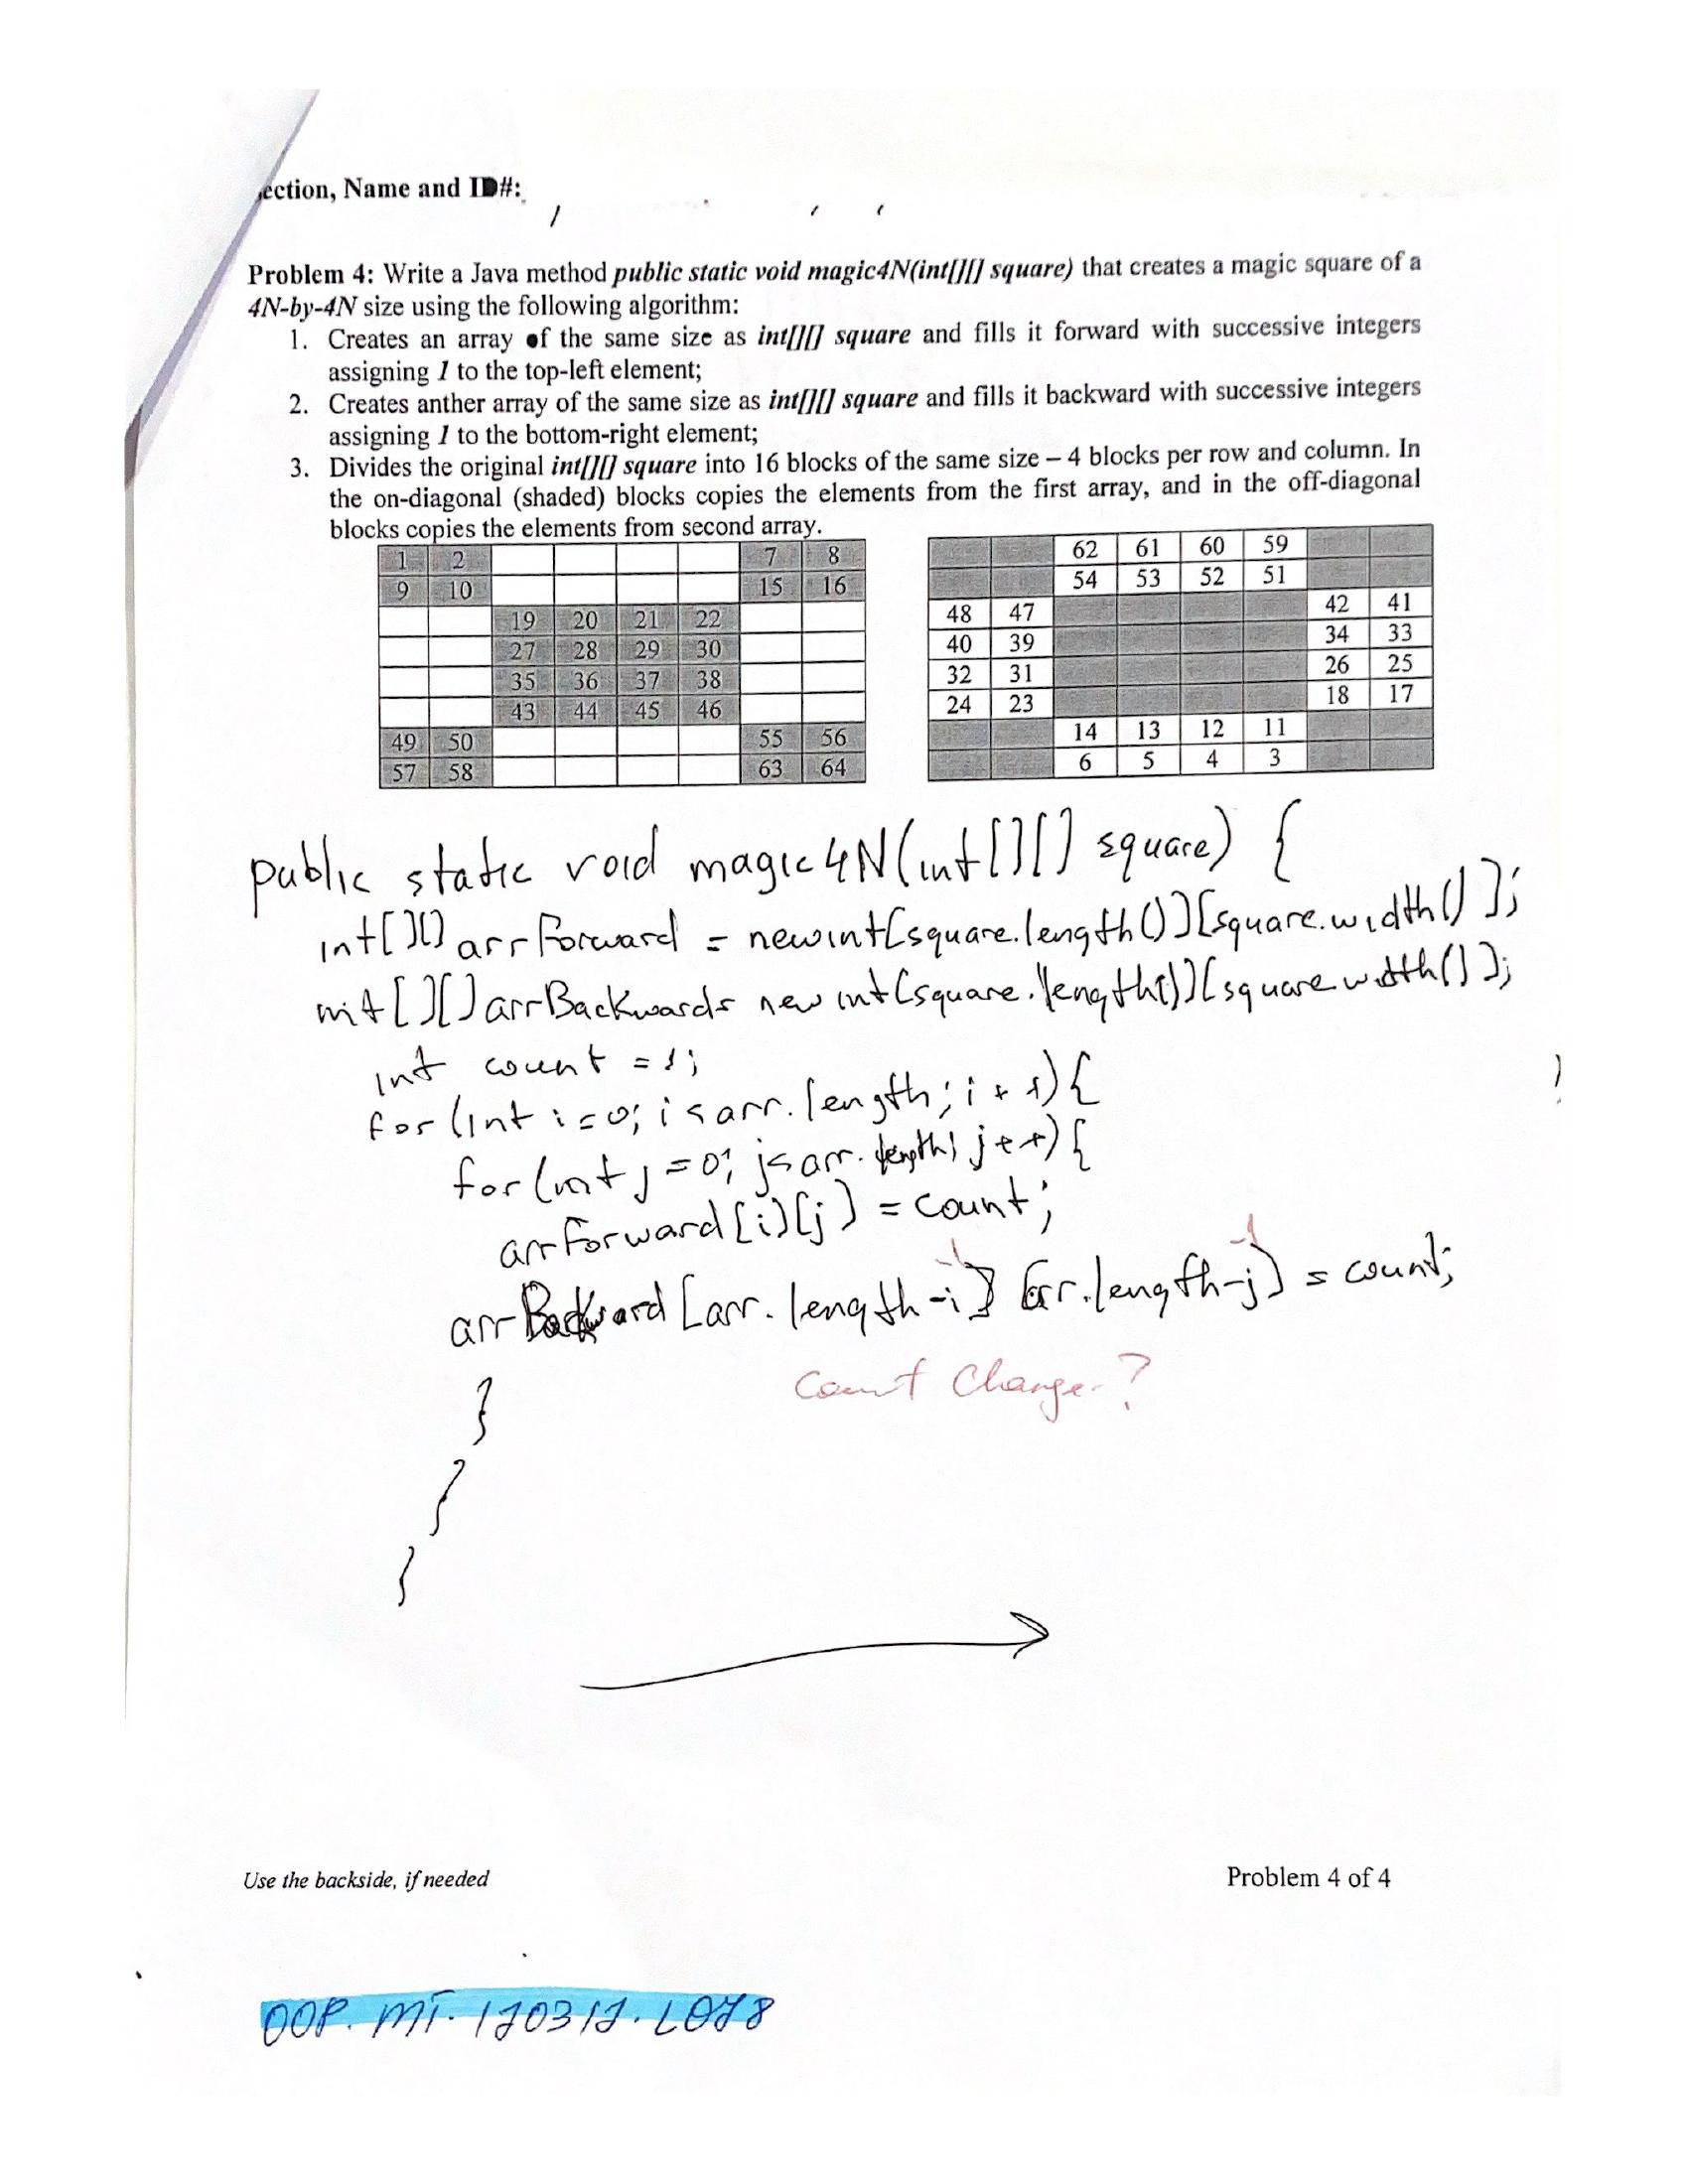 ection, Name and ID#:
Problem 4: Write a Java method public static void magic4N(int[][] square) that creates a magic square of a
4N-by-4N size using the following algorithm:
1. Creates an array of the same size as int[][] square and fills it forward with successive integers
assigning 1 to the top-left element;
2. Creates anther array of the same size as int[][] square and fills it backward with successive integers
assigning 1 to the bottom-right element;
3. Divides the original int[][] square into 16 blocks of the same size – 4 blocks per row and column. In
the on-diagonal (shaded) blocks copies the elements from the first array, and in the off-diagonal
blocks copies the elements from second array.
1 2 7 8
9 10 15 16
19 20 21 22
27 28 29 30
35 36 37 38
43 44 45 46
49 50 55 56
57 58 63 64
62 61 60 59
54 53 52 51
48 47 42 41
40 39 34 33
32 31 26 25
24 23 18 17
14 13 12 11
6 5 4 3
public static void magic4N(int[][] square) {
int[][] arrForward = newint[square.length()][square.width()];
int[][] arrBackwards new int[square.length()][square width()];
int count = 1;
for (int i=0; i<arr.length; i++){
for (int j=0; j<arr.length; j++){
arrForward[i][j] = count;
-1 -1
arrBackward [arr.length-i] [arr.length-j] = count;
Count Change?
}
}
}
Use the backside, if needed
Problem 4 of 4
OOP. MT. 170317. L078